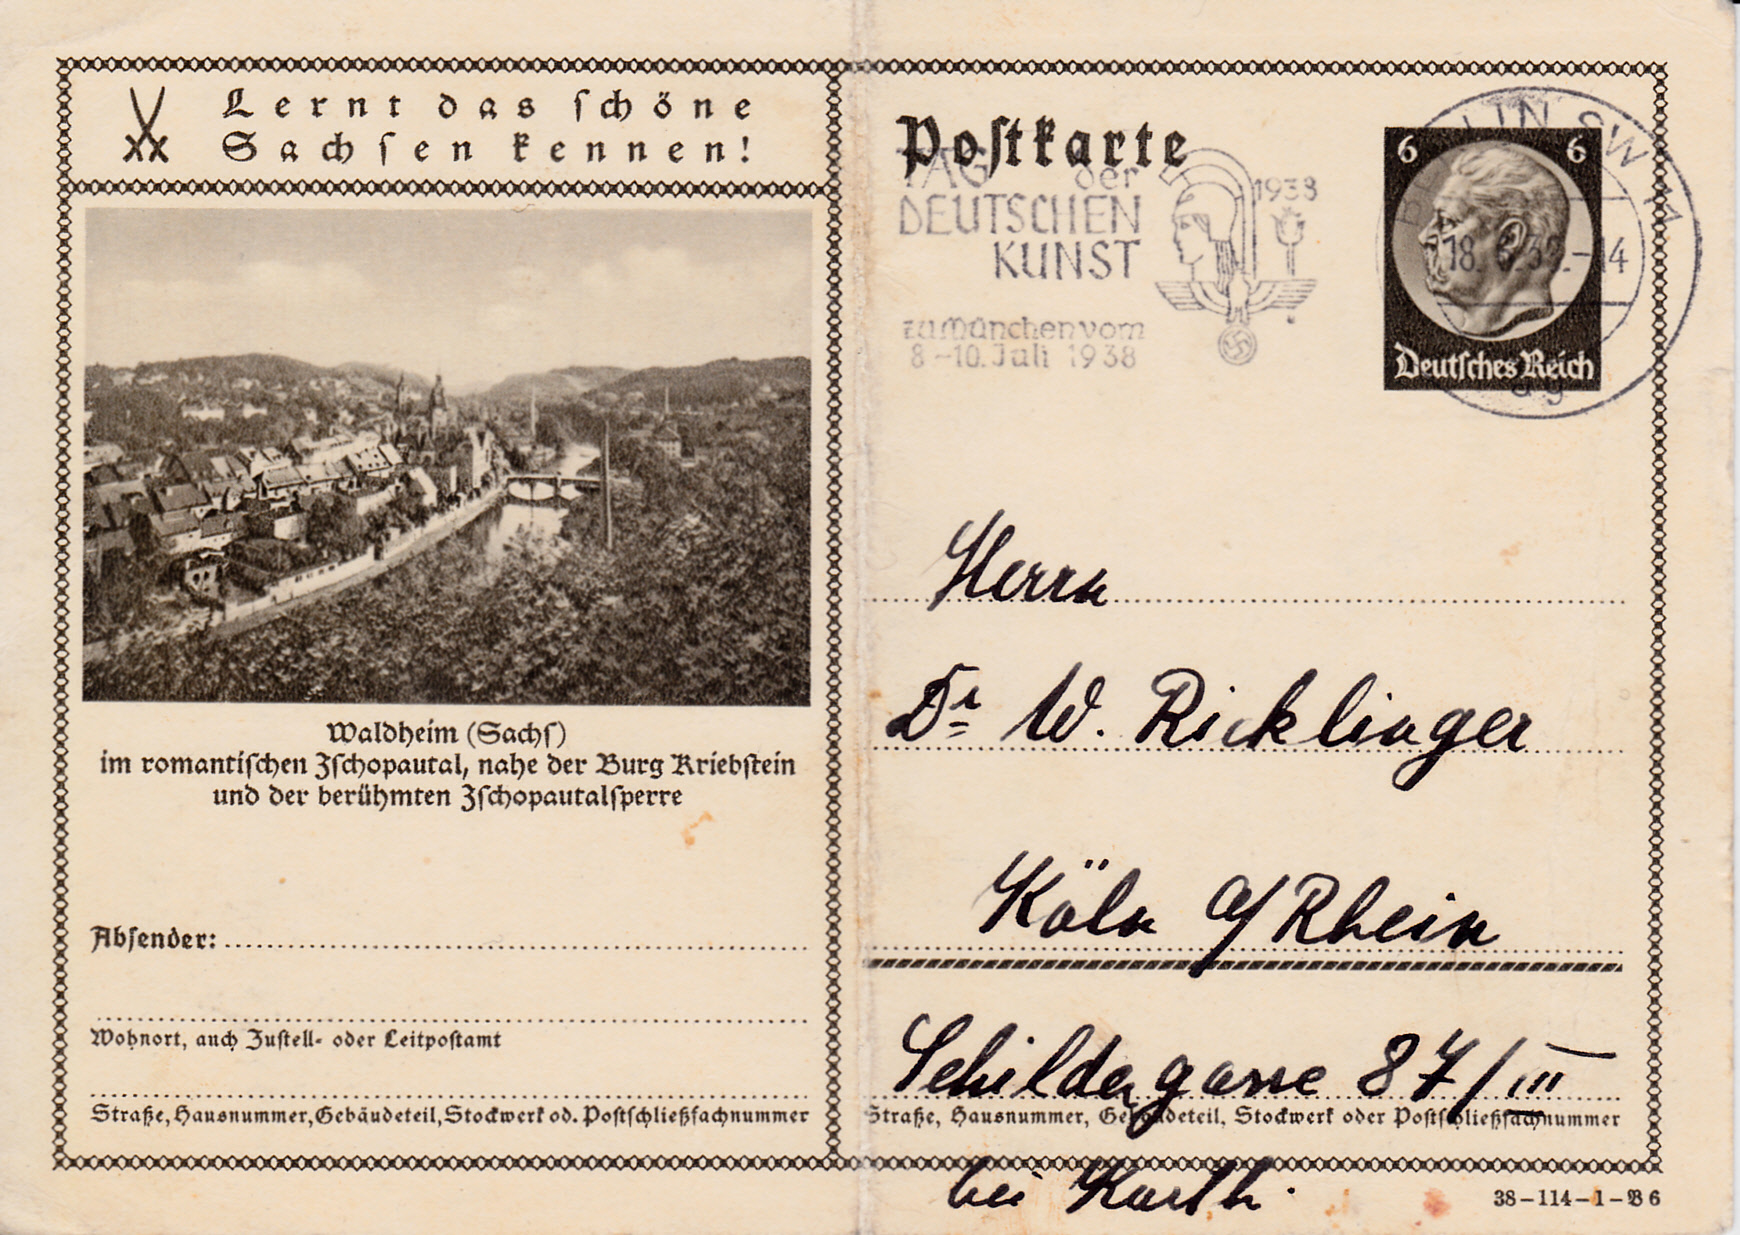 Lernt das schöne
Sachsen kennen!
Waldheim (Sachs)
im romantischen Zschopautal, nahe der Burg Kriebstein
und der berühmten Zschopautalsperre
Absender:
Wohnort, auch Zustell- oder Leitpostamt
Straße, Hausnummer, Gebäudeteil, Stockwerk od. Postschließfachnummer
Postkarte
TAG der
DEUTSCHEN
KUNST
1938
zu München vom
8-10. Juli 1938
6 6
Deutsches Reich
BERLIN SW 11
Herrn
Dr W. Ricklinger
Köln a/Rhein
Schildergasse 87/III
Straße, Hausnummer, Gebäudeteil, Stockwerk oder Postschließfachnummer
bei Karth.
38-114-1-B6